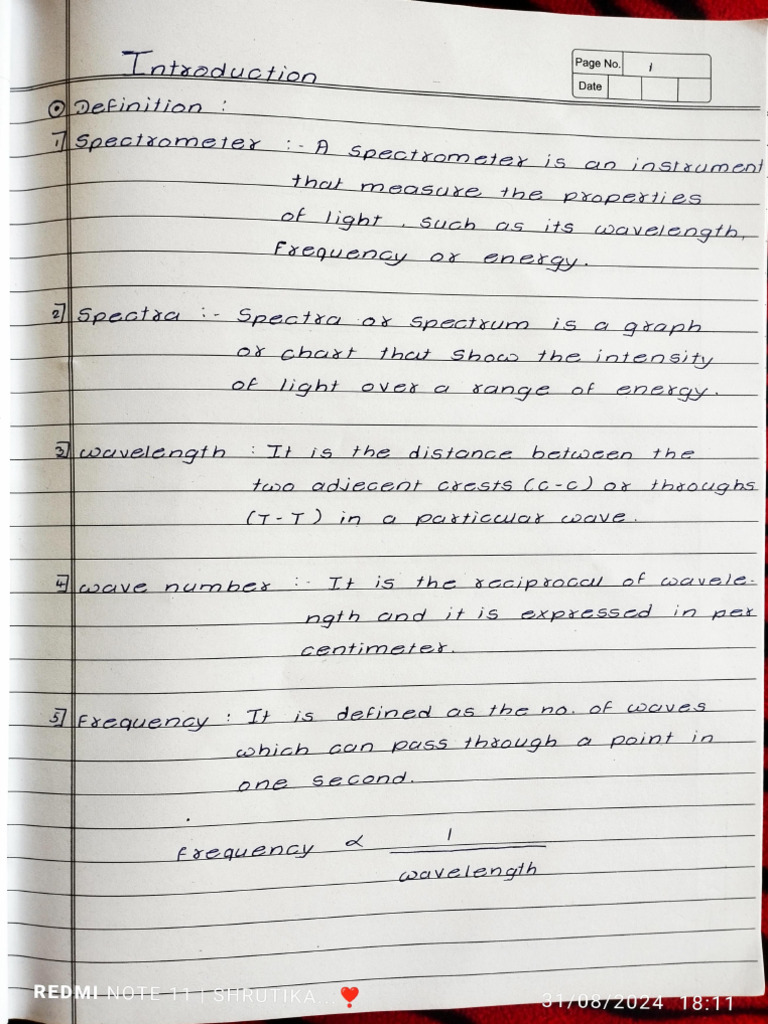 Introduction
Page No. 1
Date
⊙ Definition :
1] Spectrometer :- A spectrometer is an instrument
that measure the properties
of light, such as its wavelength,
frequency or energy.
2] Spectra :- Spectra or spectrum is a graph
or chart that show the intensity
of light over a range of energy.
3] wavelength : It is the distance between the
two adjecent crests (C-C) or throughs
(T-T) in a particular wave.
4] wave number :- It is the reciprocal of wavele-
ngth and it is expressed in per
centimeter.
5] Frequency : It is defined as the no. of waves
which can pass through a point in
one second.
Frequency ∝ 1
wavelength
REDMI NOTE 11 | SHRUTIKA...❣️
31/08/2024 18:11